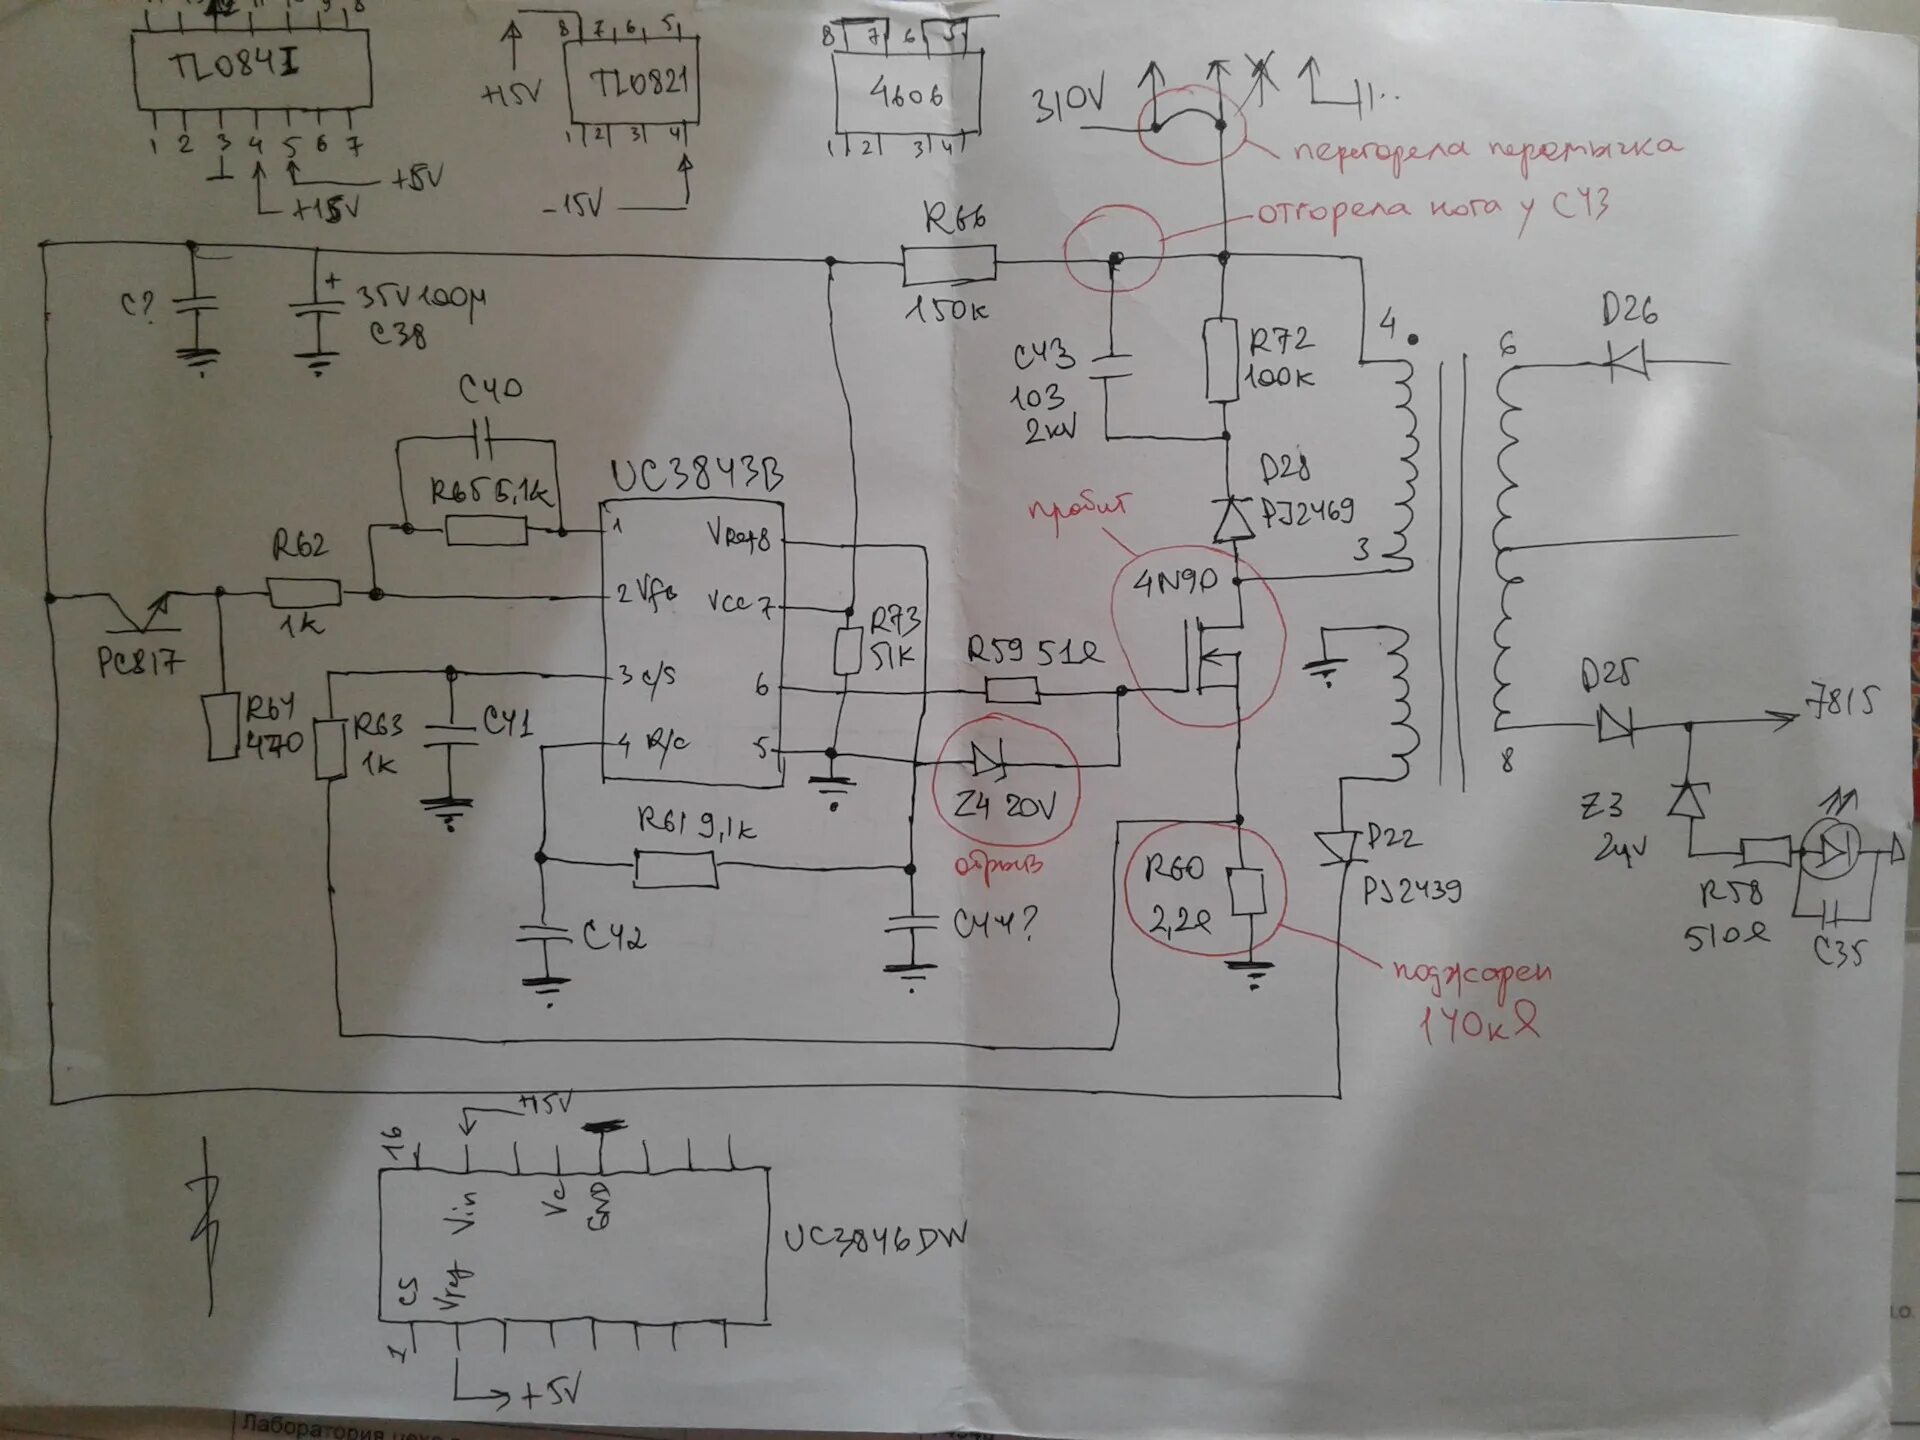 TL084I
1 2 3 4 5 6 7
+5V
+15V
8 7 6 5
+15V
TL0821
1 2 3 4
-15V
8 7 6 5
4606
1 2 3 4
310V
перегорела перемычка
отгорела нога у C43
R66
150к
C?
+
35V100м
C38
C43
103
2кV
R72
100к
4
3
6
8
D26
C40
R65 5,1к
UC3843B
1
2 Vfb
3 c/s
4 R/C
VRef 8
Vcc 7
6
5
R62
1к
PC817
R64
470
R63
1к
C41
R73
51к
R59 51Ω
пробит
4N90
D28
PJ2469
Z4 20V
обрыв
R61 9,1к
C42
C44?
R60
2,2Ω
поджарен
140кΩ
D22
PJ2439
D25
7815
Z3
24V
R58
510Ω
C35
+15V
16
Vin
Vc
GND
CS
Vref
1
UC3846DW
+5V
Лаборатория